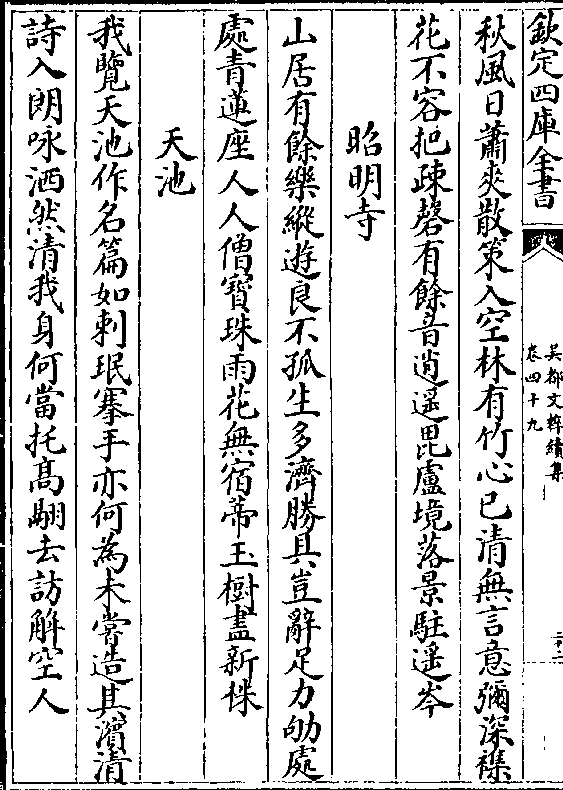 欽定四庫全書
吳都文粹續集
卷四十九
秋風日蕭爽散策入空林有竹心已清無言意彌深襍
花不容把疎磬有餘音逍遥毘盧境落景駐遥岑
昭明寺
山居有餘樂縱遊良不孤生多濟勝具豈辭足力劬處
處青蓮座人人僧寳珠雨花無宿蒂玉樹盡新株
天池
我覽天池作名篇如刺珉搴手亦何為未嘗造其濵清
詩入朗咏洒然清我身何當托髙翮去訪解空人